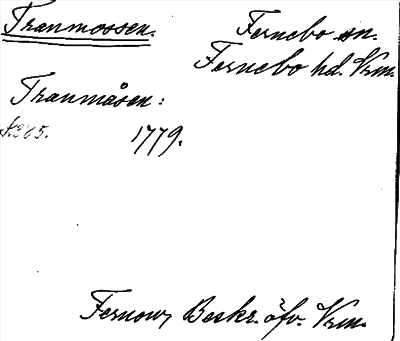 Tranmossen. Fernebo sn.
Fernebo hd. Vrm.
Tranmåsen:
s. 365. 1779.
Fernow, Beskr. öfv. Vrm.